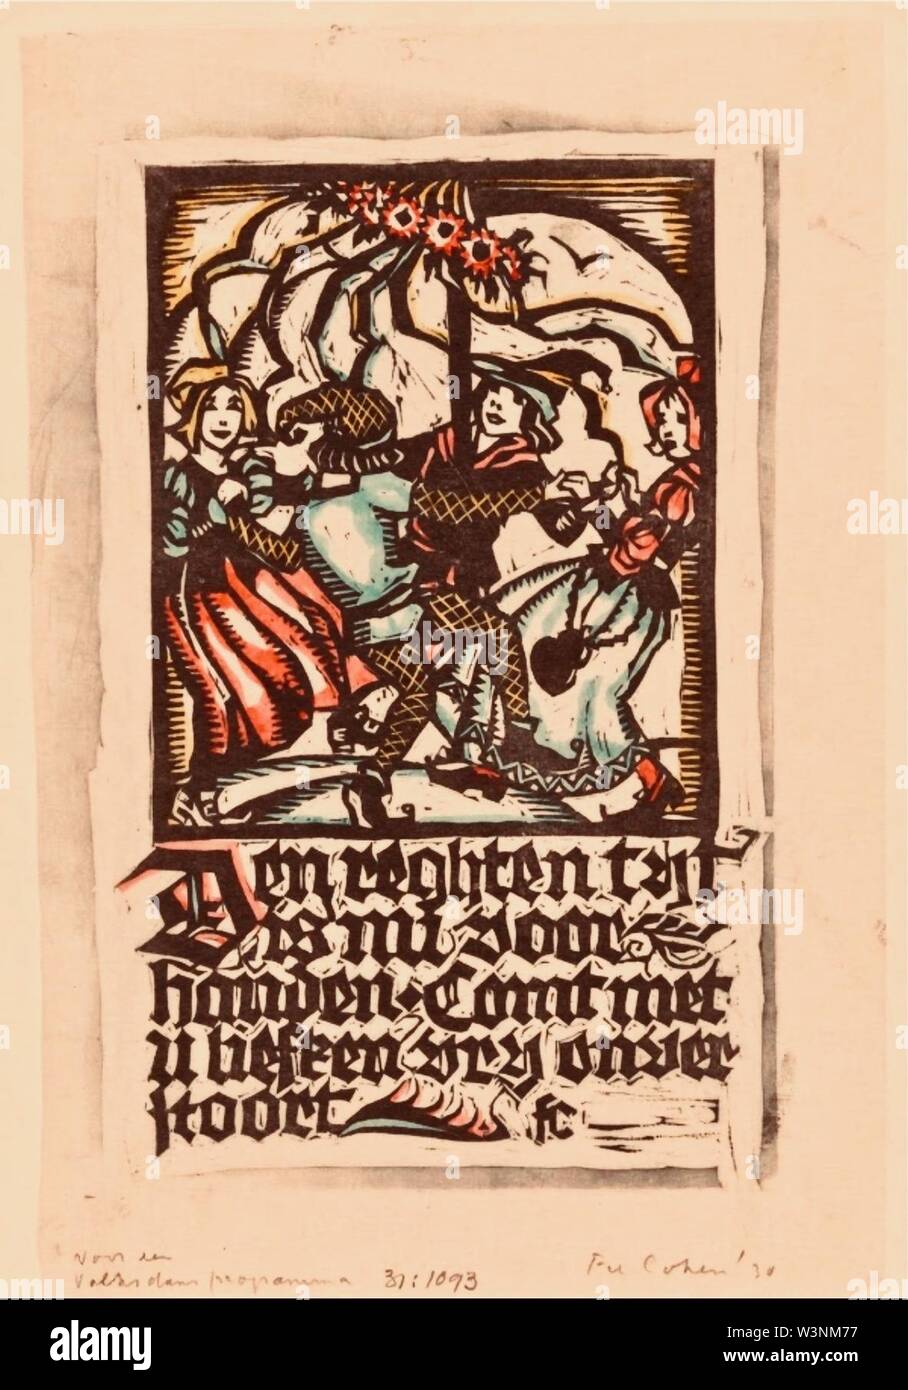 Den reghten tyt
is mi voor
handen · Comt met
u liefken vry onver
stoort
fc
Voor een
Volksdans programma 31:1093
Fré Cohen '30
alamy
Image ID: W3NM77
www.alamy.com